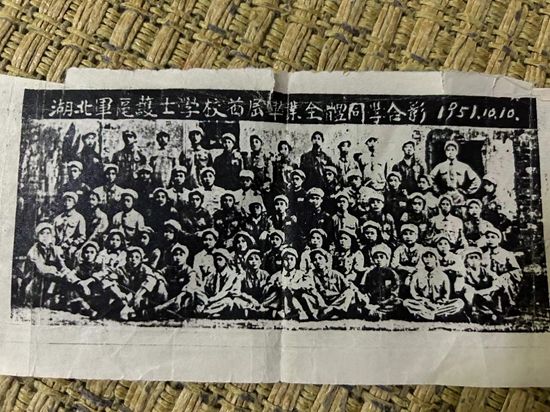 湖北軍區護士学校首届畢業全體同学合影 1951.10.10.